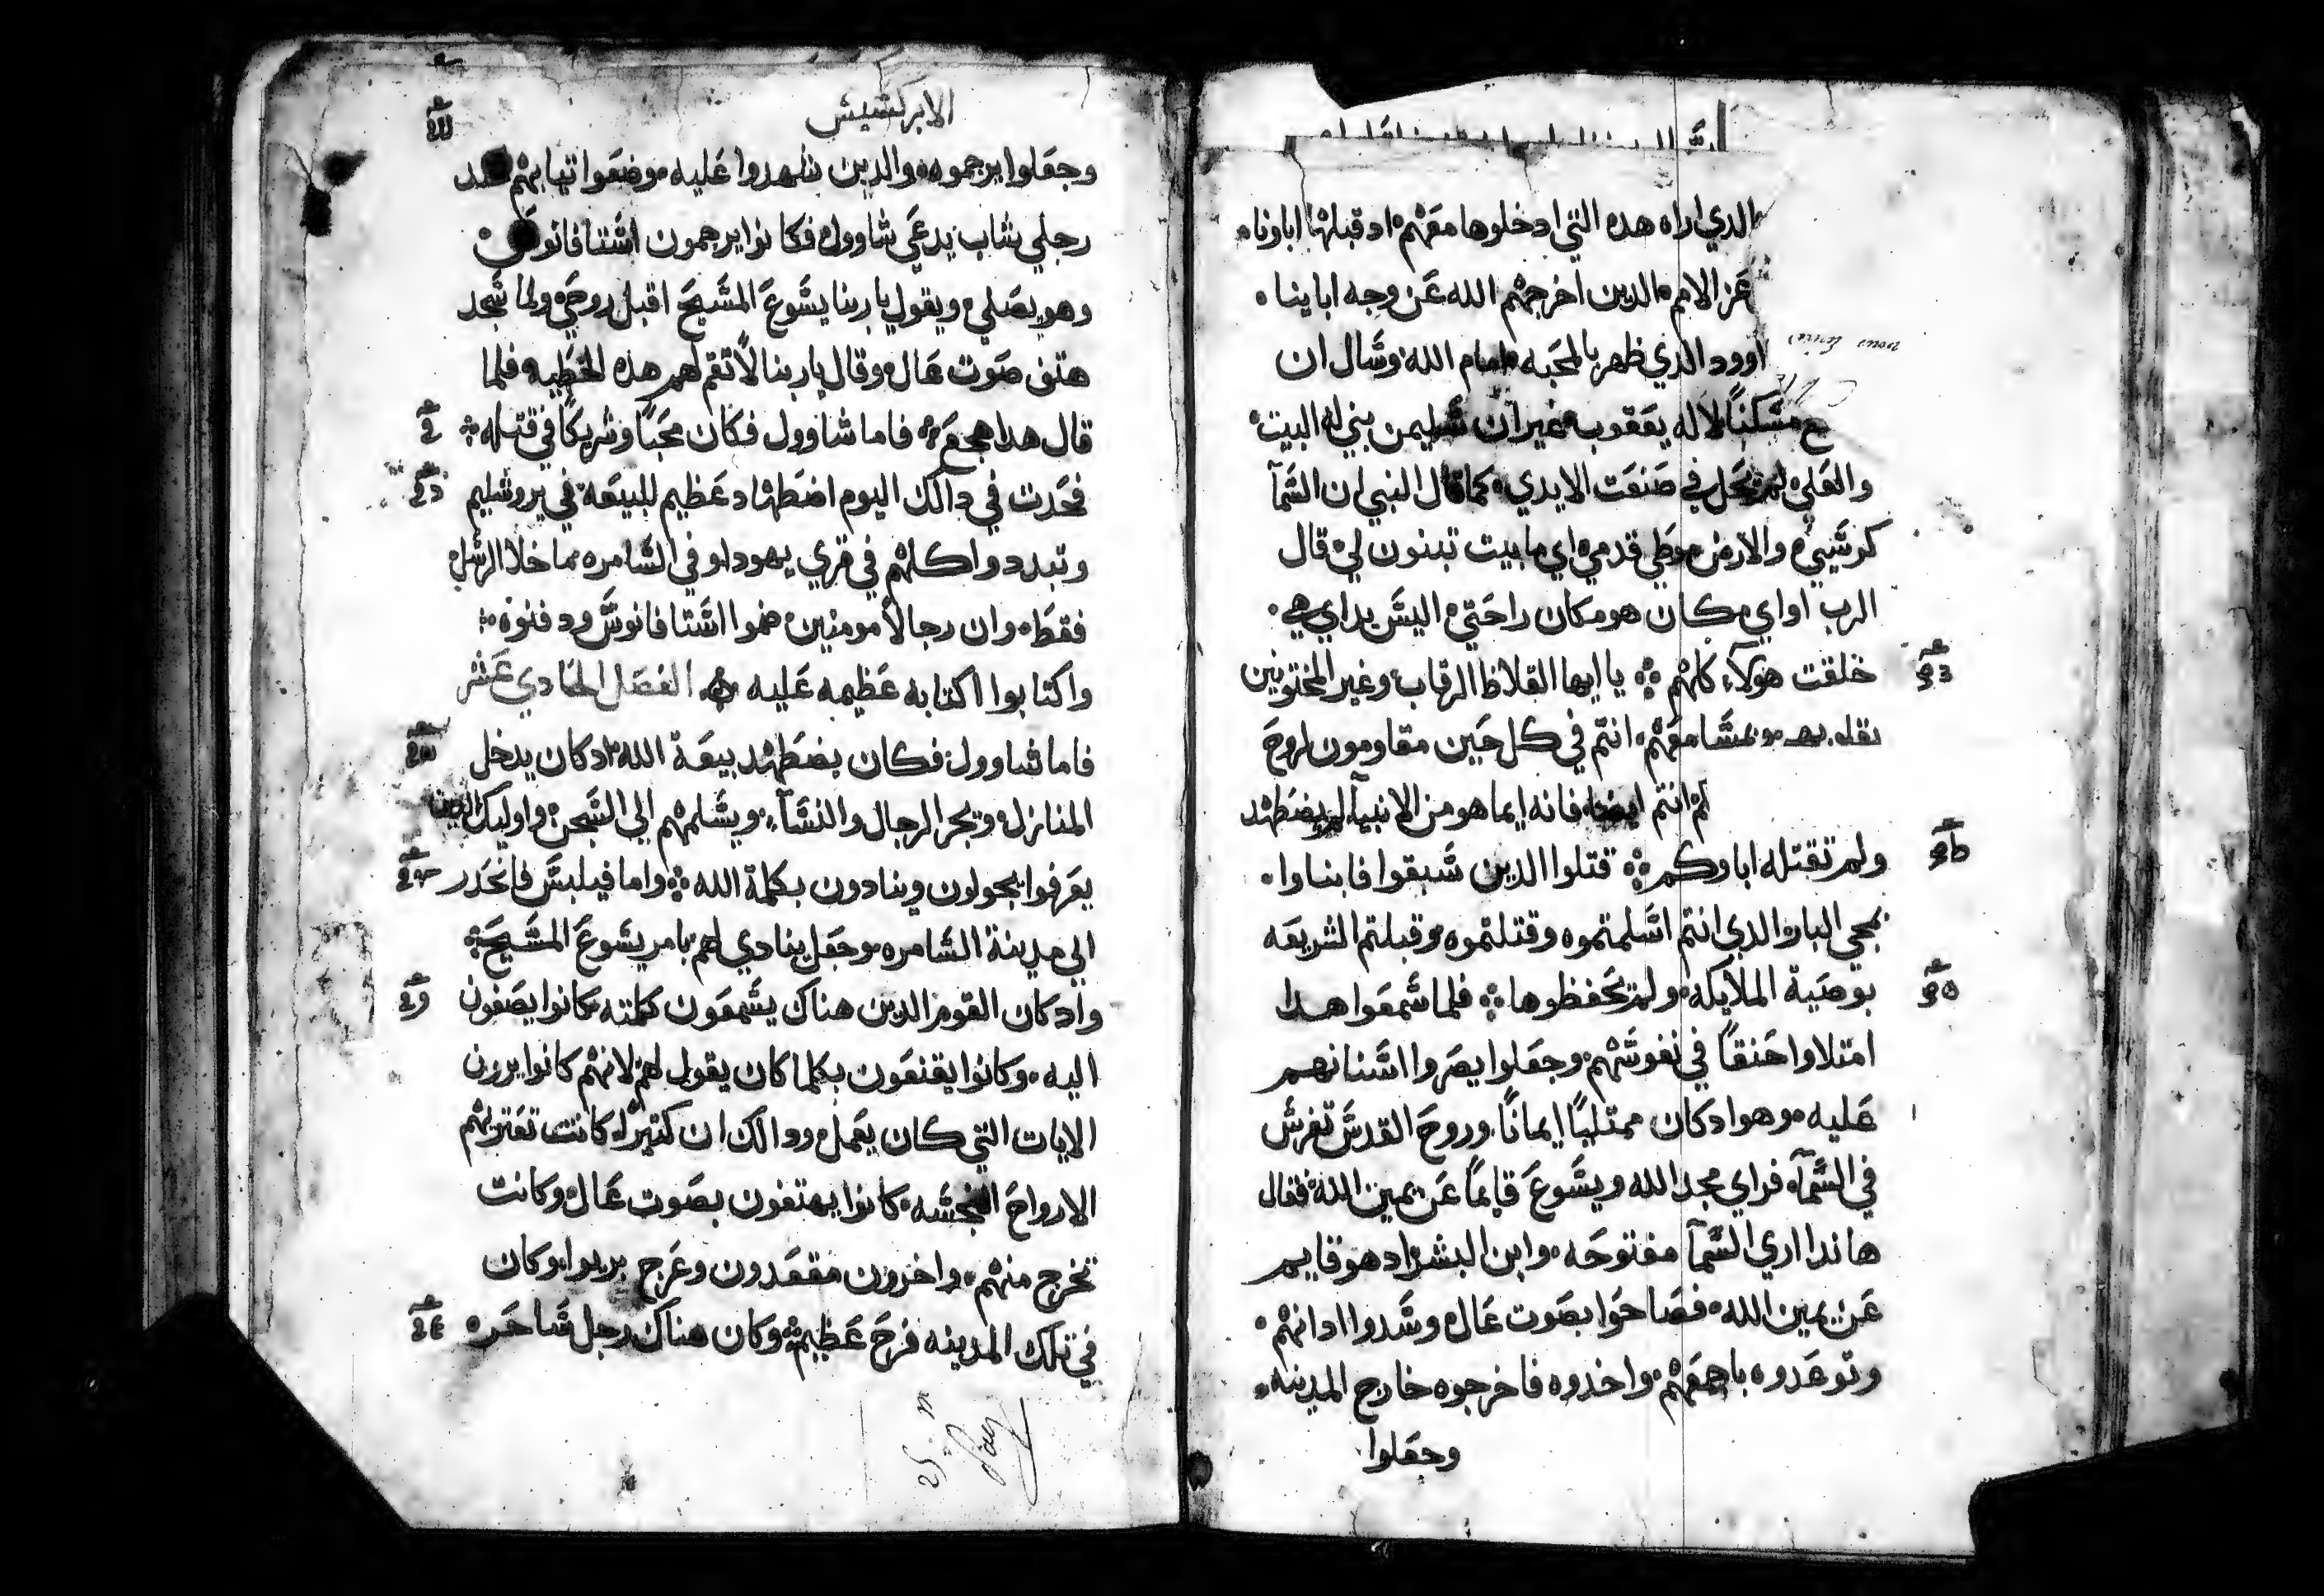 الدي اراه هده التي ادخلوها معهم اد قبلها اباونا
عن الامم الدين اخرجهم الله عن وجه اباينا
اوود الدي ظهر بالمحبه امام الله وسال ان
مسكنًا لاله يعقوب غير ان سليمن بني له البيت
والعلي لم يحل في صنعت الايدي كما قال النبي ان السمآ
كرسيي والارض موطي قدمي اي ما بيت تبنون لي قال
الرب او اي مكان هو مكان راحتي اليس يداي هي
خلقت هولآء كلهم يا ايها الغلاظ الرقاب وغير المختونين
انتم في كل حين مقاومون لروح
انتم ايضا فانه ايما هو من الانبيآ لم يضطهد
ولم تقتله اباوكم قتلوا الدين سبقوا فابناوا
بمجي البار الدي انتم اسلمتموه وقتلتموه وقبلتم الشريعه
بوصية الملايكه ولم تحفظوها فلما سمعوا هدا
امتلاوا حنقًا في نفوسهم وجعلوا يصروا اسنانهم
عليه وهو اد كان ممتليًا ايمانًا وروح القدس تفرس
في السمآء فراي مجد الله ويسوع قايمًا عن يمين الله فقال
هاندا اري السمآ مفتوحه وابن البشر اد هو قايم
عن يمين الله فصاحوا بصوت عال وسدوا ادانهم
وتوعدوه باجمعهم واخدوه فاخرجوه خارج المدينه
وجعلوا
الابركسيس
وجعلوا يرجموه والدين شهدوا عليه وضعوا تيابهم عند
رجلي شاب يدعي شاوول فكانوا يرجمون استافانوس
وهو يصلي ويقول يا ربنا يسوع المسيح اقبل روحي ولما سجد
هتف صوت عال وقال يا ربنا لا تقم لهم هده الخطيه فلما
قال هدا هجع فاما شاوول فكان محبًا وشريكًا في قتله
فحدت في دالك اليوم اضطهاد عظيم للبيعه في يروشليم
وتبددوا كلهم في قري يهودا وفي السامره ما خلا الرسل
فقط وان رجالًا مومنين ضموا استافانوس ودفنوه
واكتابوا اكتابه عظيمه عليه الفصل الحادي عشر
فاما شاوول فكان يضطهد بيعة الله اد كان يدخل
المنازل ويجر الرجال والنسآء ويسلمهم الي السجن واوليك الدين
يعرفوا يجولون وينادون بكلمة الله واما فيلبس فانحدر
الي مدينة السامره وجعل ينادي لهم بامر يسوع المسيح
واد كان القوم الدين هناك يسمعون كلمته كانوا يصغون
اليه وكانوا يقنعون بكلما كان يقول لهم لانهم كانوا يرون
الايات التي كان يعمل ودالك ان كتيرًا كانت تعتريهم
الارواح النجسه كانوا يهتفون بصوت عال وكانت
تخرج منهم واخرون مقعدون وعرج بريوا وكان
في تلك المدينه فرح عظيم وكان هناك رجل ساحر